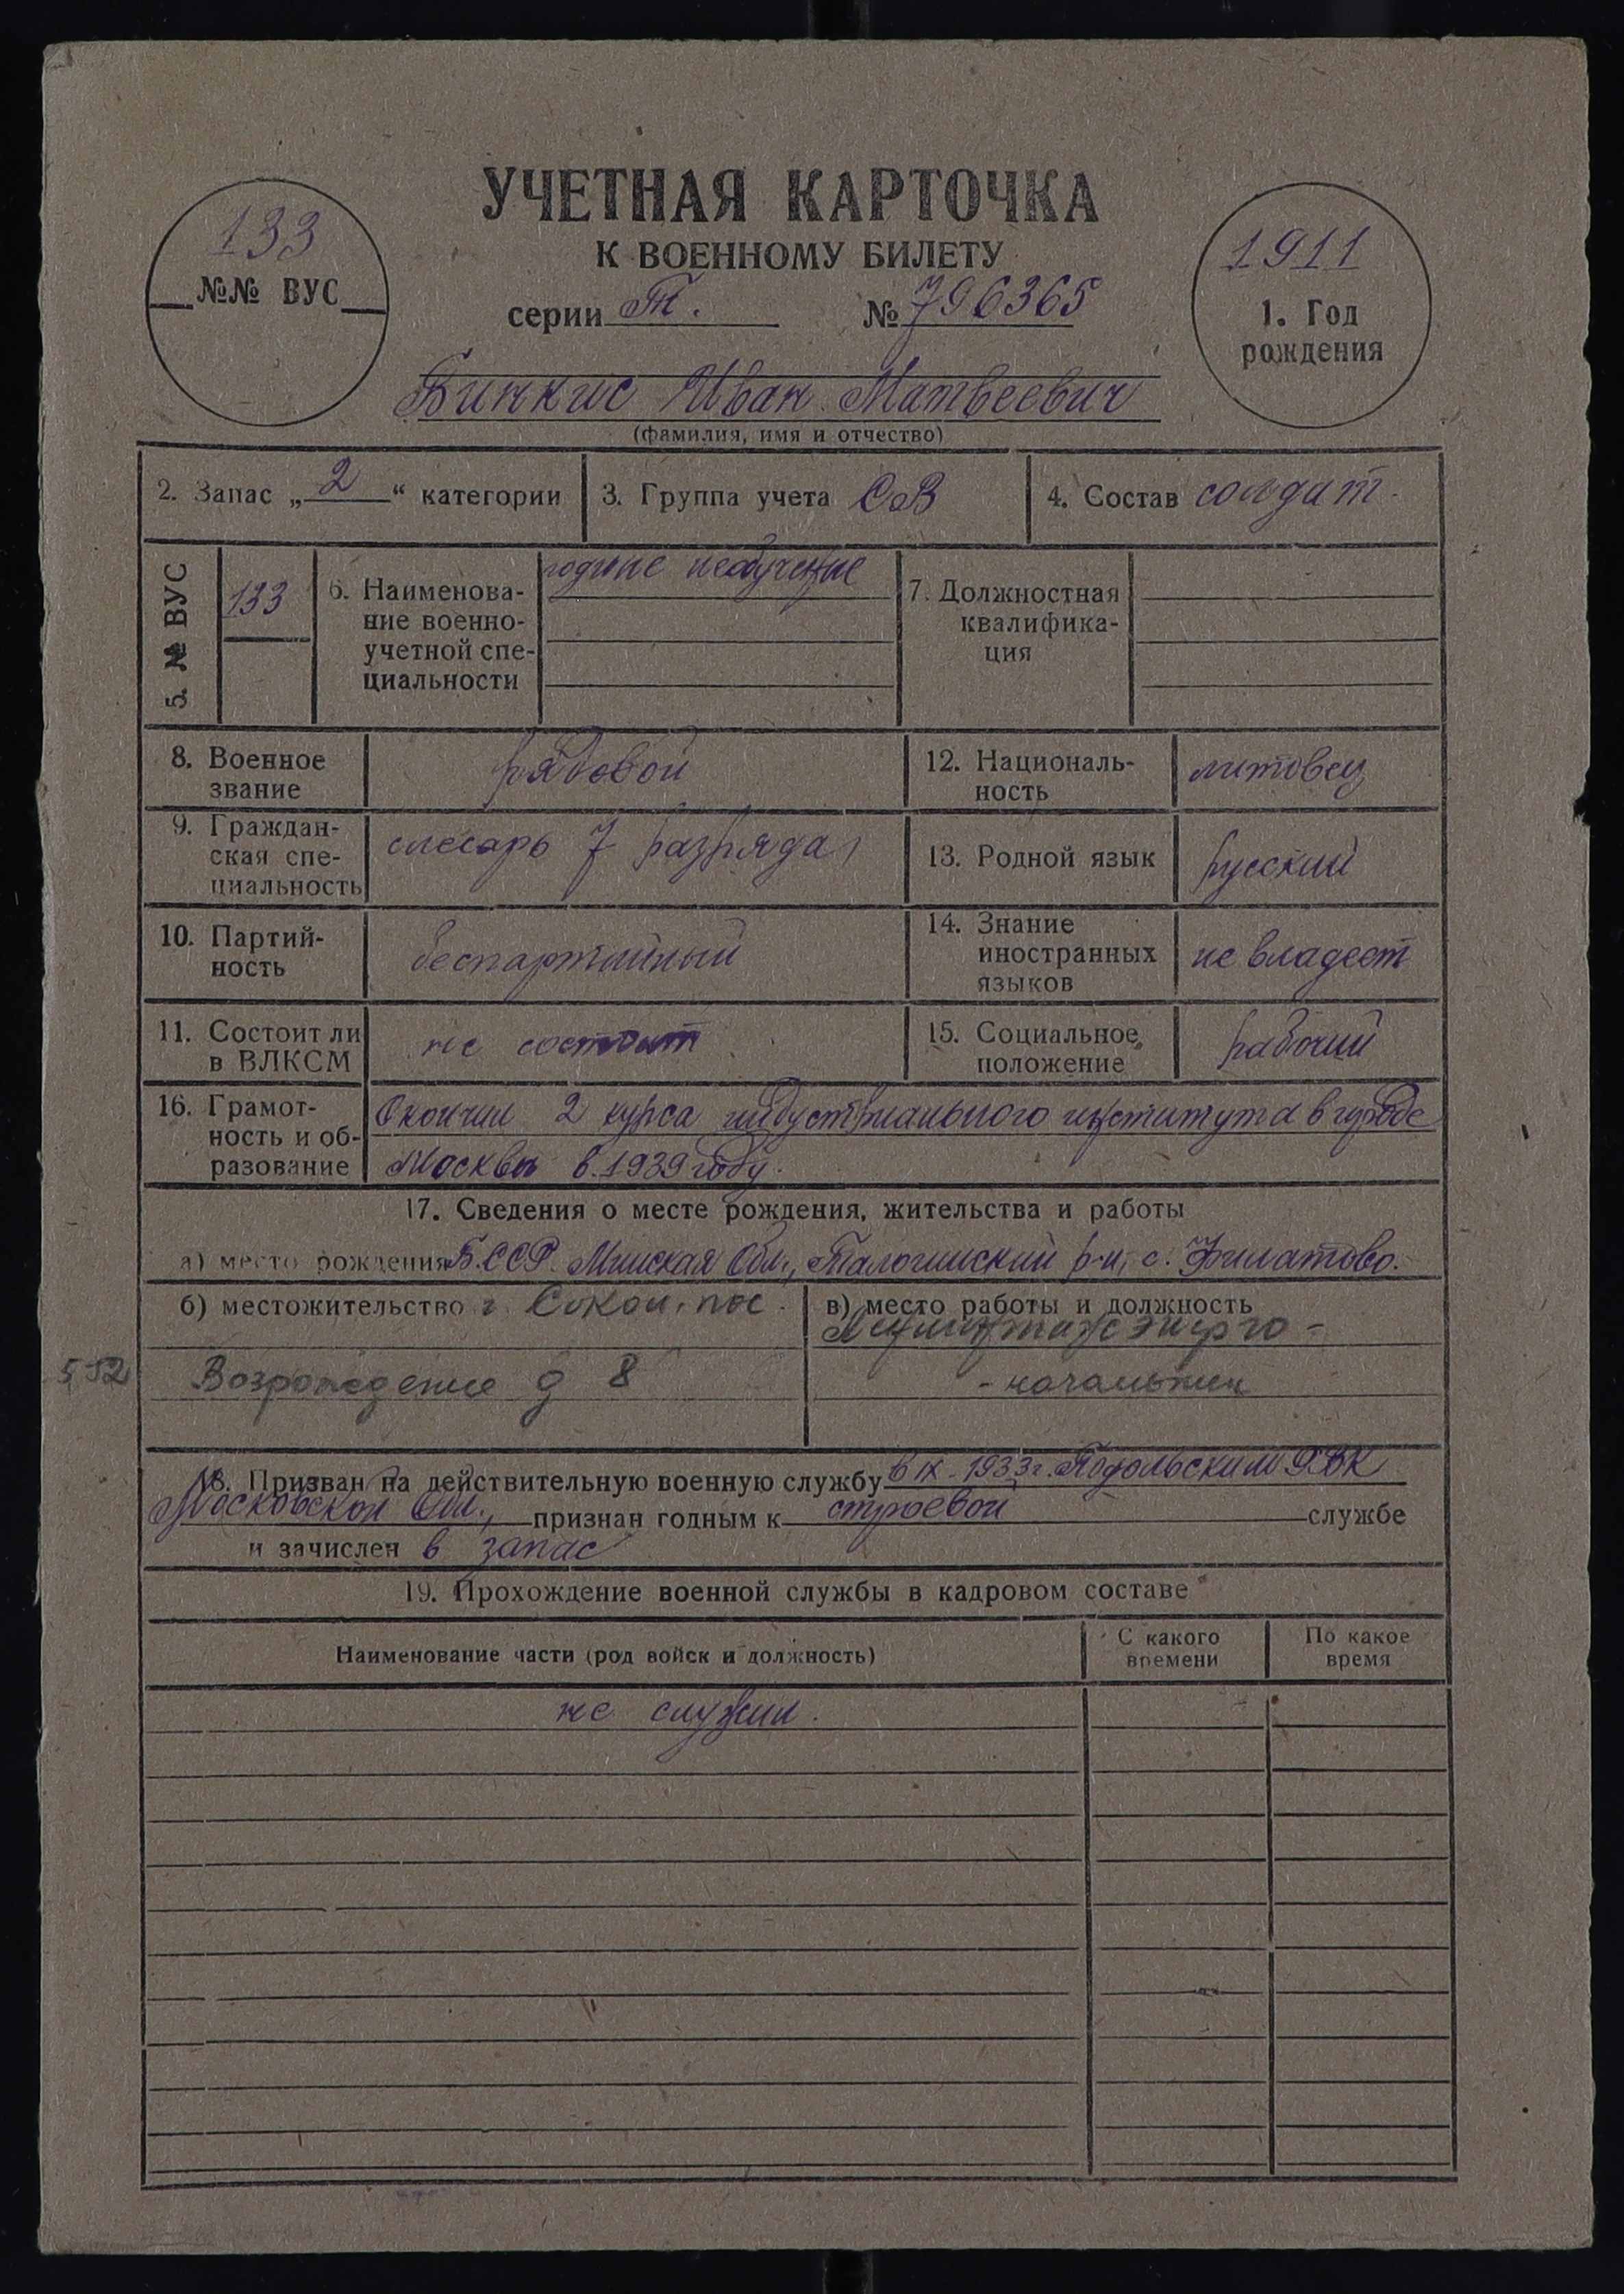 УЧЕТНАЯ КАРТОЧКА
К ВОЕННОМУ БИЛЕТУ
133
№№ ВУС
серии Т. № 796365
1911
1. Год
рождения
Бинкис Иван Матвеевич
(фамилия, имя и отчество)
2. Запас „2“ категории
3. Группа учета СВ
4. Состав солдат.
5. № ВУС
133
6. Наименова-
ние военно-
учетной спе-
циальности
годные необученые
7. Должностная
квалифика-
ция
8. Военное
звание
рядовой
12. Националь-
ность
литовец
9. Граждан-
ская спе-
циальность
слесарь 7 разряда
13. Родной язык
русский
10. Партий-
ность
беспартийный
14. Знание
иностранных
языков
не владеет
11. Состоит ли
в ВЛКСМ
не состоит
15. Социальное
положение
рабочий
16. Грамот-
ность и об-
разование
Окончил 2 курса индустриального института в городе
Москва в 1939 году.
17. Сведения о месте рождения, жительства и работы
а) место рождения Б.ССР. Минская Обл., Талочинский р-н, с. Филатово.
б) местожительство г. Сокол, пос.
Возрождение д 8
5-52
в) место работы и должность
- начальник
18. Призван на действительную военную службу в IX-1933г. Подольским РВК
Московской Обл., признан годным к строевой службе
и зачислен в запас
19. Прохождение военной службы в кадровом составе
Наименование части (род войск и должность)
С какого
времени
По какое
время
не служил.